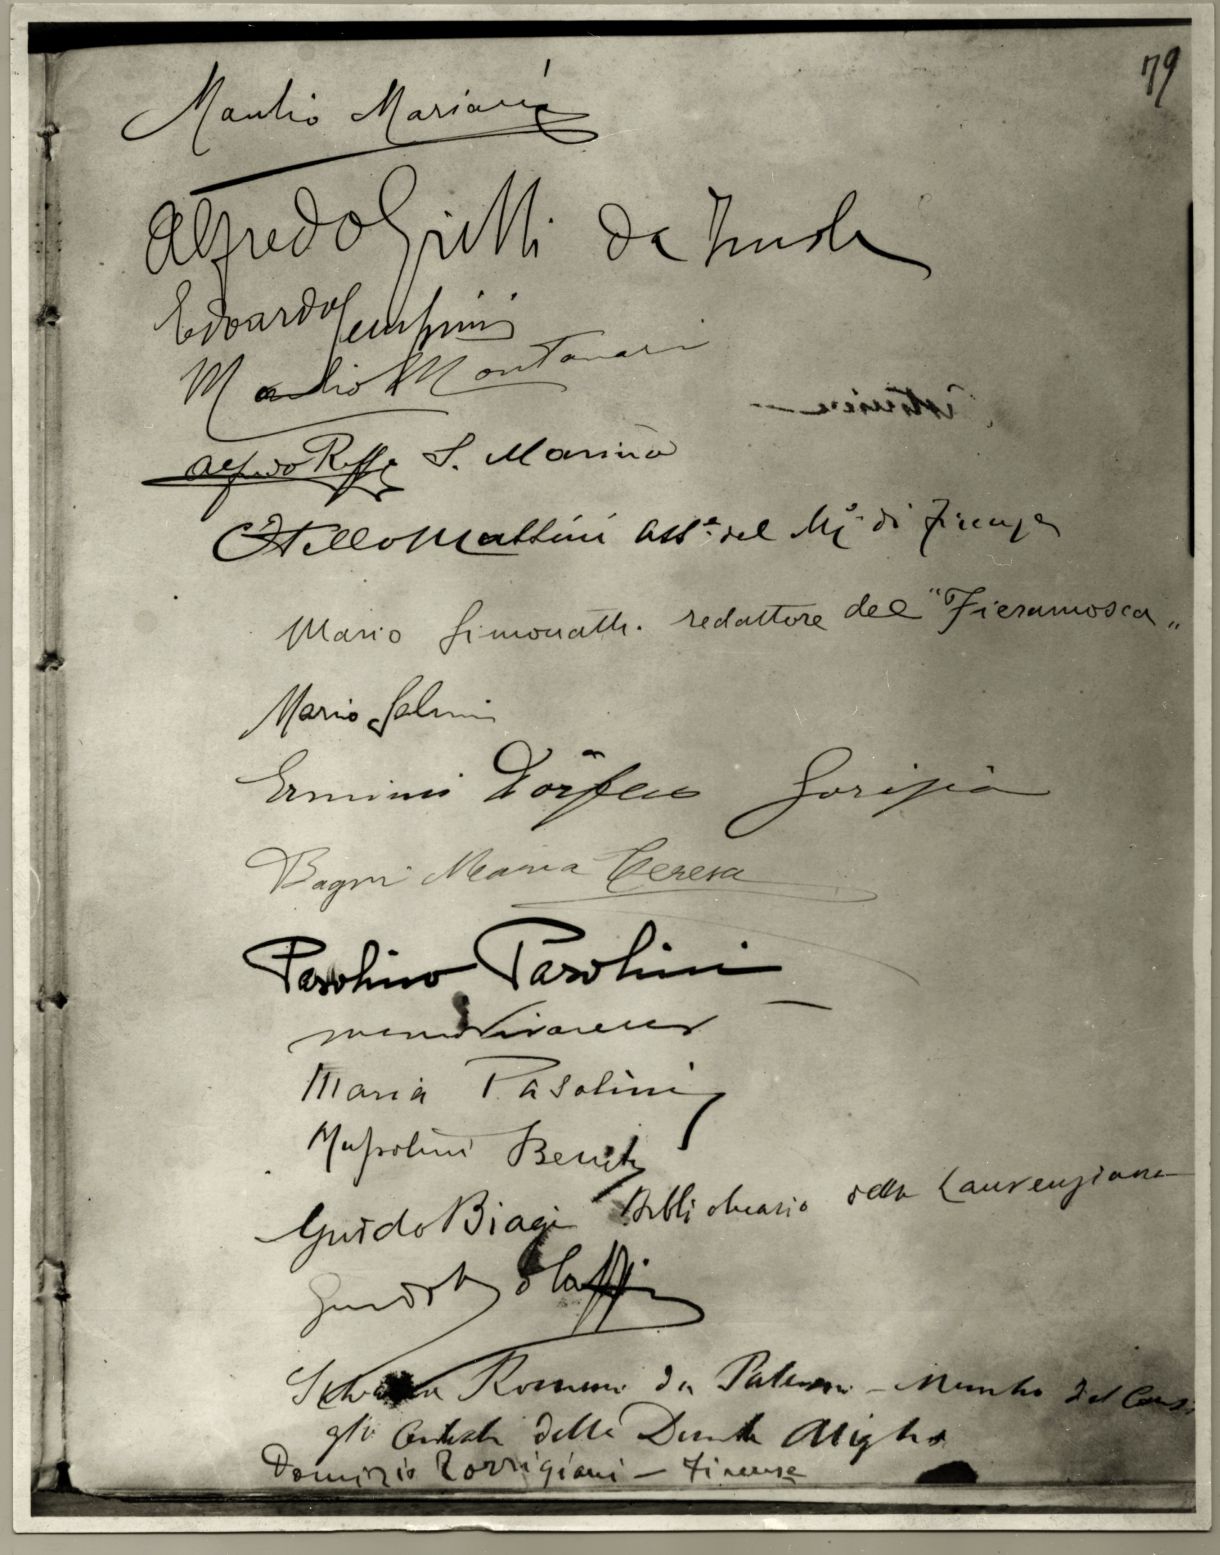 79
Manlio Mariani
Alfredo Gritti da Imola
Edoardo
Manlio Montanari
Alfredo Reffi S. Marino
Otello Mattini Ass.e del Mº. di Firenze
Mario Simonatti. redattore del "Fieramosca"
Mario Salmi
Erminio Dörfles Gorizia
Bagni Maria Teresa
Pasolino Pasolini
Maria Pasolini
Guido Biagi Bibliotecario della Laurenziana
Guido
Romano da Palermo - Membro del Consi
glio Centrale della Dante Alighi
Domizio Torrigiani - Firenze